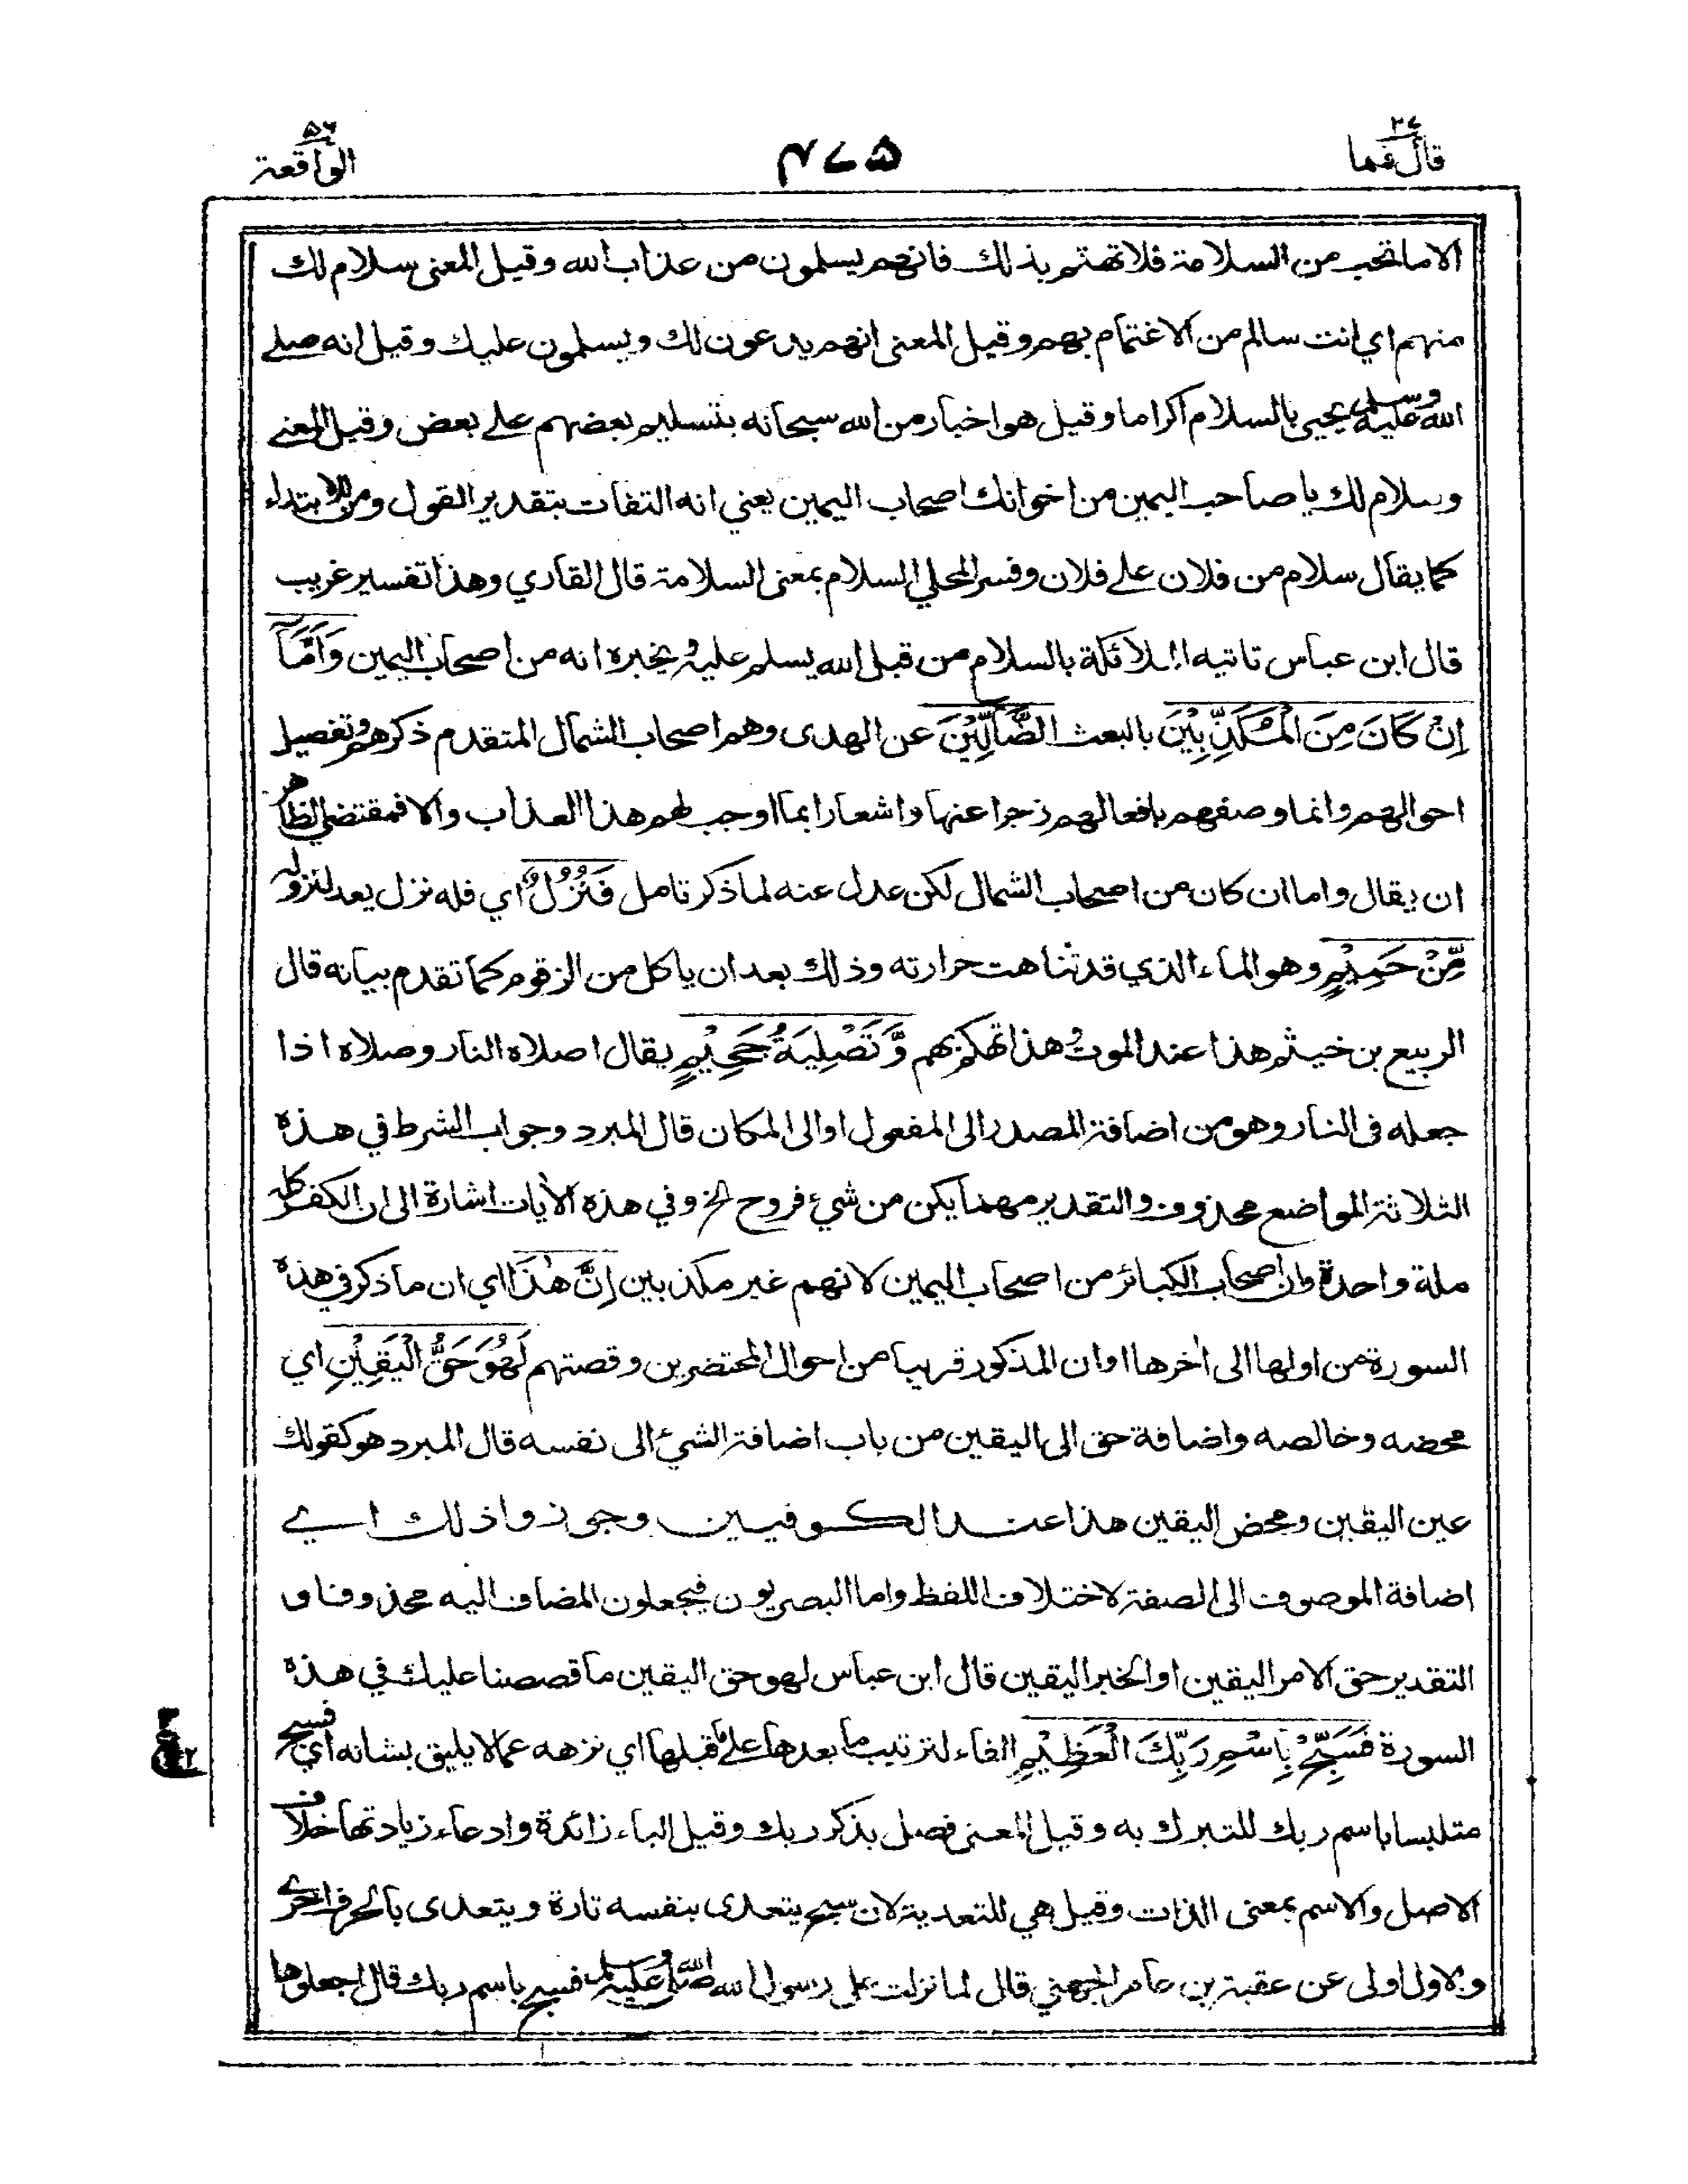 قال فما ٢٧
٤٧٥
الواقعة ٥٦
الا ما تحب من السلامة فلا تهتم بذلك فانهم يسلمون من عذاب الله وقيل المعنى سلام لك
منهم اي انت سالم من الاغتمام بهم وقيل المعنى انهم يدعون لك ويسلمون عليك وقيل انه صلے
الله عليه وسلم يحيى بالسلام اكراما وقيل هو اخبار من الله سبحانه بتسليم بعضهم علے بعض وقيل المعنے
وسلام لك يا صاحب اليمين من اخوانك اصحاب اليمين يعني انه التفات بتقدير القول ومن للابتداء
كما يقال سلام من فلان علے فلان وفسر المحلي السلام بمعنى السلامة قال القاري وهذا تفسير غريب
قال ابن عباس تاتيه الملائكة بالسلام من قبل الله يسلم عليه ويخبره انه من اصحاب اليمين وَاَمَّا
اِنْ كَانَ مِنَ الْمُكَذِّبِيْنَ بالبعث الضَّالِّيْنَ عن الهدى وهم اصحاب الشمال المتقدم ذكرهم وتفصيل
احوالهم وانما وصفهم بافعالهم زجرا عنها واشعارا بما اوجب لهم هذا العذاب والا فمقتضى الظاهر
ان يقال واما ان كان من اصحاب الشمال لكن عدل عنه لما ذكر تامل فَنُزُلٌ اي فله نزل يعد لنزوله
مِّنْ حَمِيْمٍ وهو الماء الذي قد تناهت حرارته وذلك بعد ان ياكل من الزقوم كما تقدم بيانه قال
الربيع بن خيثم هذا عند الموت وهذا تهكم بهم وَّتَصْلِيَةُ جَحِيْمٍ يقال اصلاه النار وصلاه اذا
جعله في النار وهو من اضافة المصدر الى المفعول او الى المكان قال المبرد وجواب الشرط في هذه
الثلاثة المواضع محذوف والتقدير مهما يكن من شيء فروح الخ وفي هذه الآيات اشارة الى ان الكفر كله
ملة واحدة وان اصحاب الكبائر من اصحاب اليمين لانهم غير مكذبين اِنَّ هٰذَا اي ان ما ذكر في هذه
السورة من اولها الى اٰخرها او ان المذكور قريبا من احوال المحتضرين وقصتهم لَهُوَ حَقُّ الْيَقِيْنِ اي
محضه وخالصه واضافة حق الى اليقين من باب اضافة الشيء الى نفسه قال المبرد هو كقولك
عين اليقين ومحض اليقين هذا عند الكوفيين وجوزوا ذلك اے
اضافة الموصوف الى الصفة لاختلاف اللفظ واما البصريون فيجعلون المضاف اليه محذوفا و
التقدير حق الامر اليقين او الخبر اليقين قال ابن عباس لهو حق اليقين ما قصصنا عليك في هذه
السورة فَسَبِّحْ بِاسْمِ رَبِّكَ الْعَظِيْمِ الفاء لترتيب ما بعدها علے ما قبلها اي نزهه عما لا يليق بشانه اي فسبح
متلبسا باسم ربك للتبرك به وقيل المعنى فصل بذكر ربك وقيل الباء زائدة وادعاء زيادتها خلاف
الاصل والاسم بمعنى الذات وقيل هي للتعدية لان سبح يتعدى بنفسه تارة ويتعدى بالحرف اخرے
والاول اولى عن عقبة بن عامر الجهني قال لما نزلت على رسول الله صلى الله عليه وسلم فسبح باسم ربك قال اجعلوها